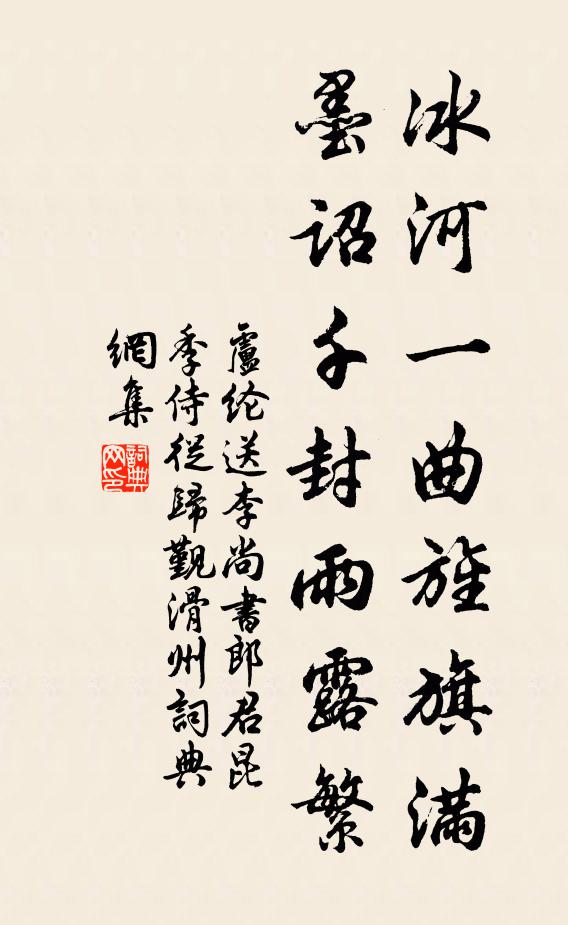 冰河一曲旌旗滿
墨詔千封雨露繁
盧纶送李尚書郎君昆
季侍從歸覲滑州詞典
網集
詞典
网印